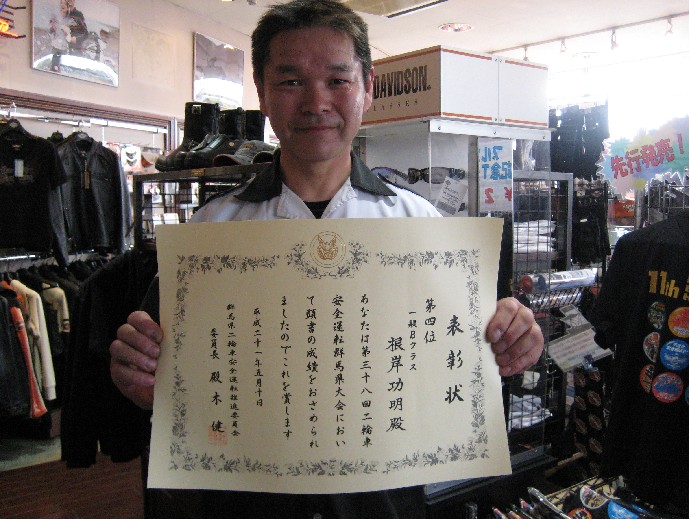 DAVIDSON.
先行発売!
11th
表彰状
第四位
一般Bクラス
根岸功明殿
あなたは第三十八回二輪車
安全運転群馬県大会におい
て頭書の成績をおさめられ
ましたのでこれを賞します
平成二十一年五月十日
群馬県二輪車安全運転推進委員会
委員長 殿木 健